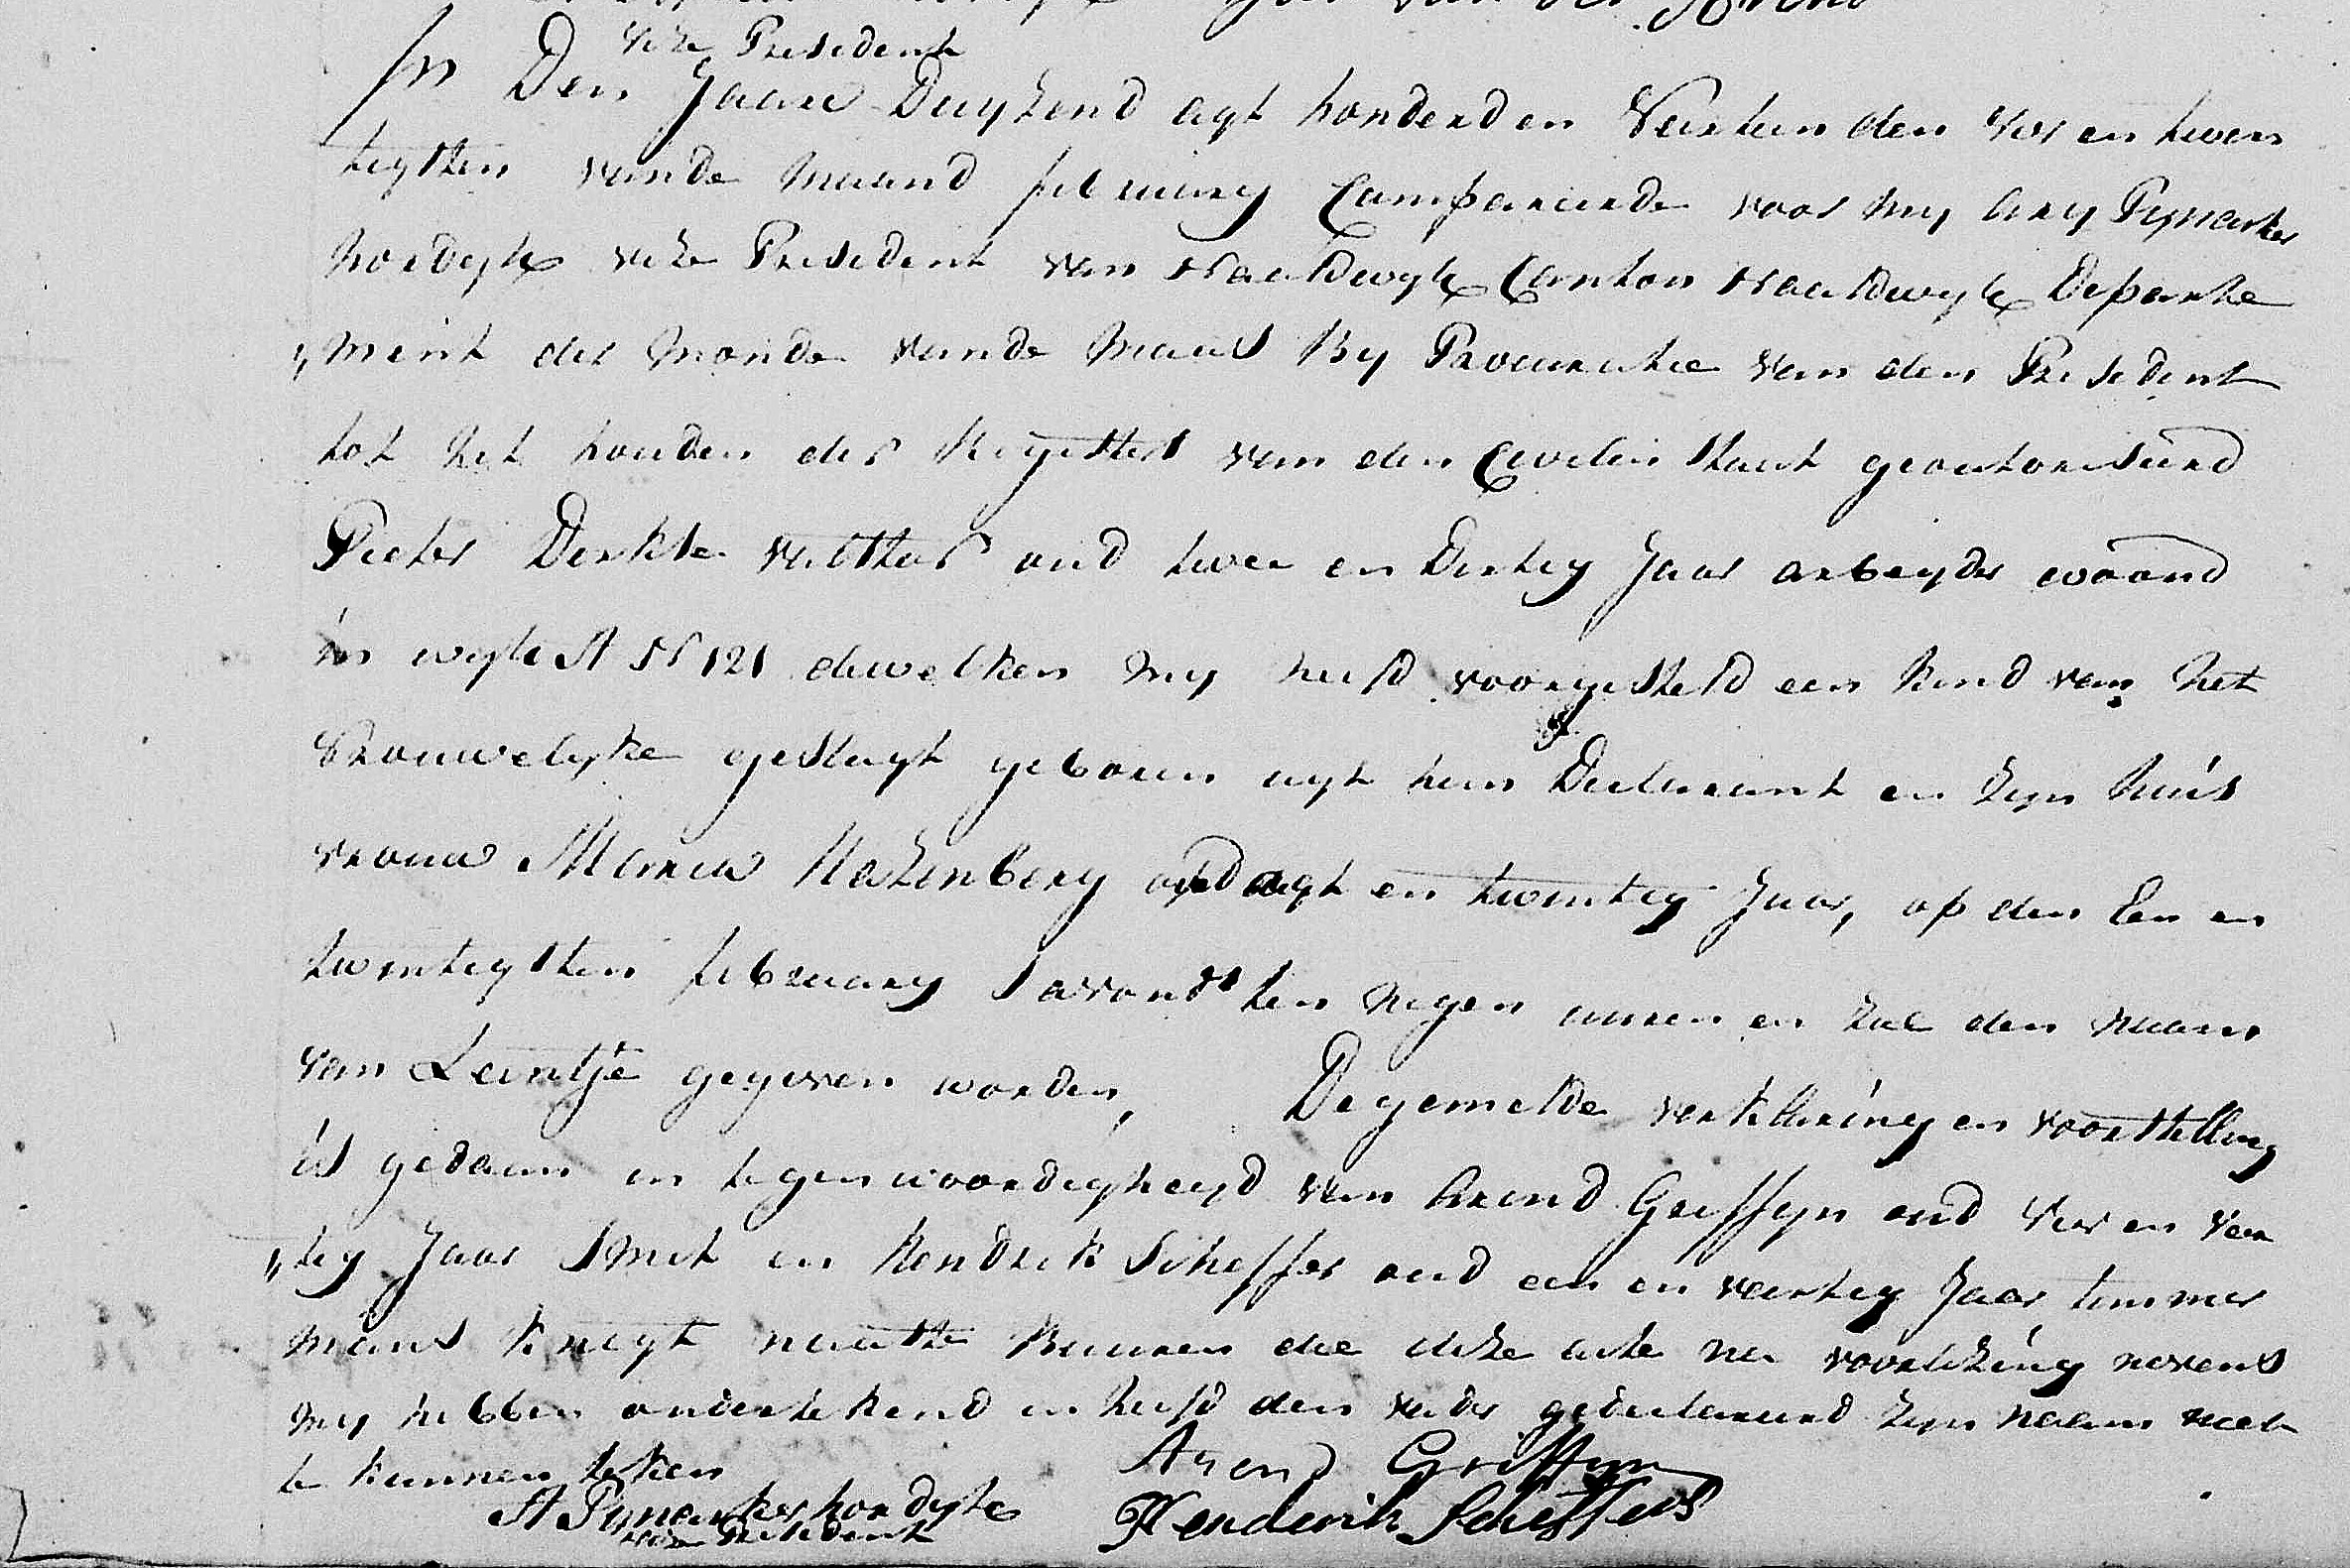 vice President
In Den Jaare Duyzend agt honderd en Veertien den vier en twen
tigsten vande maand february Compareerde voor my Ary Pynacker
hordyk vice President van Naaldwyk Canton Naaldwyk Departe
„ment der monde vande maas By Procuratie van den President
tot het houden der Registers van den Civielen Staat geautoriseerd
Pieter Dirkse oud twee en Dertig Jaar arbeyder woond
in wyk A N 121 dewelken my heeft voorgesteld een kind van het
vrouwelyke geslagt geboren uyt hem Declarant en zyn huis
vrouw Maria Hazenberg oud agt en twintig Jaar, op den Een en
twintigsten february s avonds ten negen uuren en zal den naam
van Leentje gegeven worden, De gemelde verklaring en voorstelling
is gedaan in tegenwoordigheyd van Arend Griffyn oud vier en veer
„tig Jaar Smit en Hendrik Scheffer oud een en veertig Jaar timmer
mans knegt naaste Buuren die deze acte na voorlezing nevens
my hebben ondertekend en heeft den vader gedeclareerd zyn naam niet
te kunnen teken
Arend Griffyn
A Pynacker hordyk
vice President
Henderik Scheffers